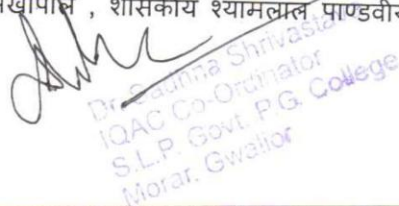 , शासकीय श्यामलाल पाण्डवीय
Dr. Sadhna Shrivastava
IQAC Co-Ordinator
S.L.P. Govt. P.G. College
Morar, Gwalior